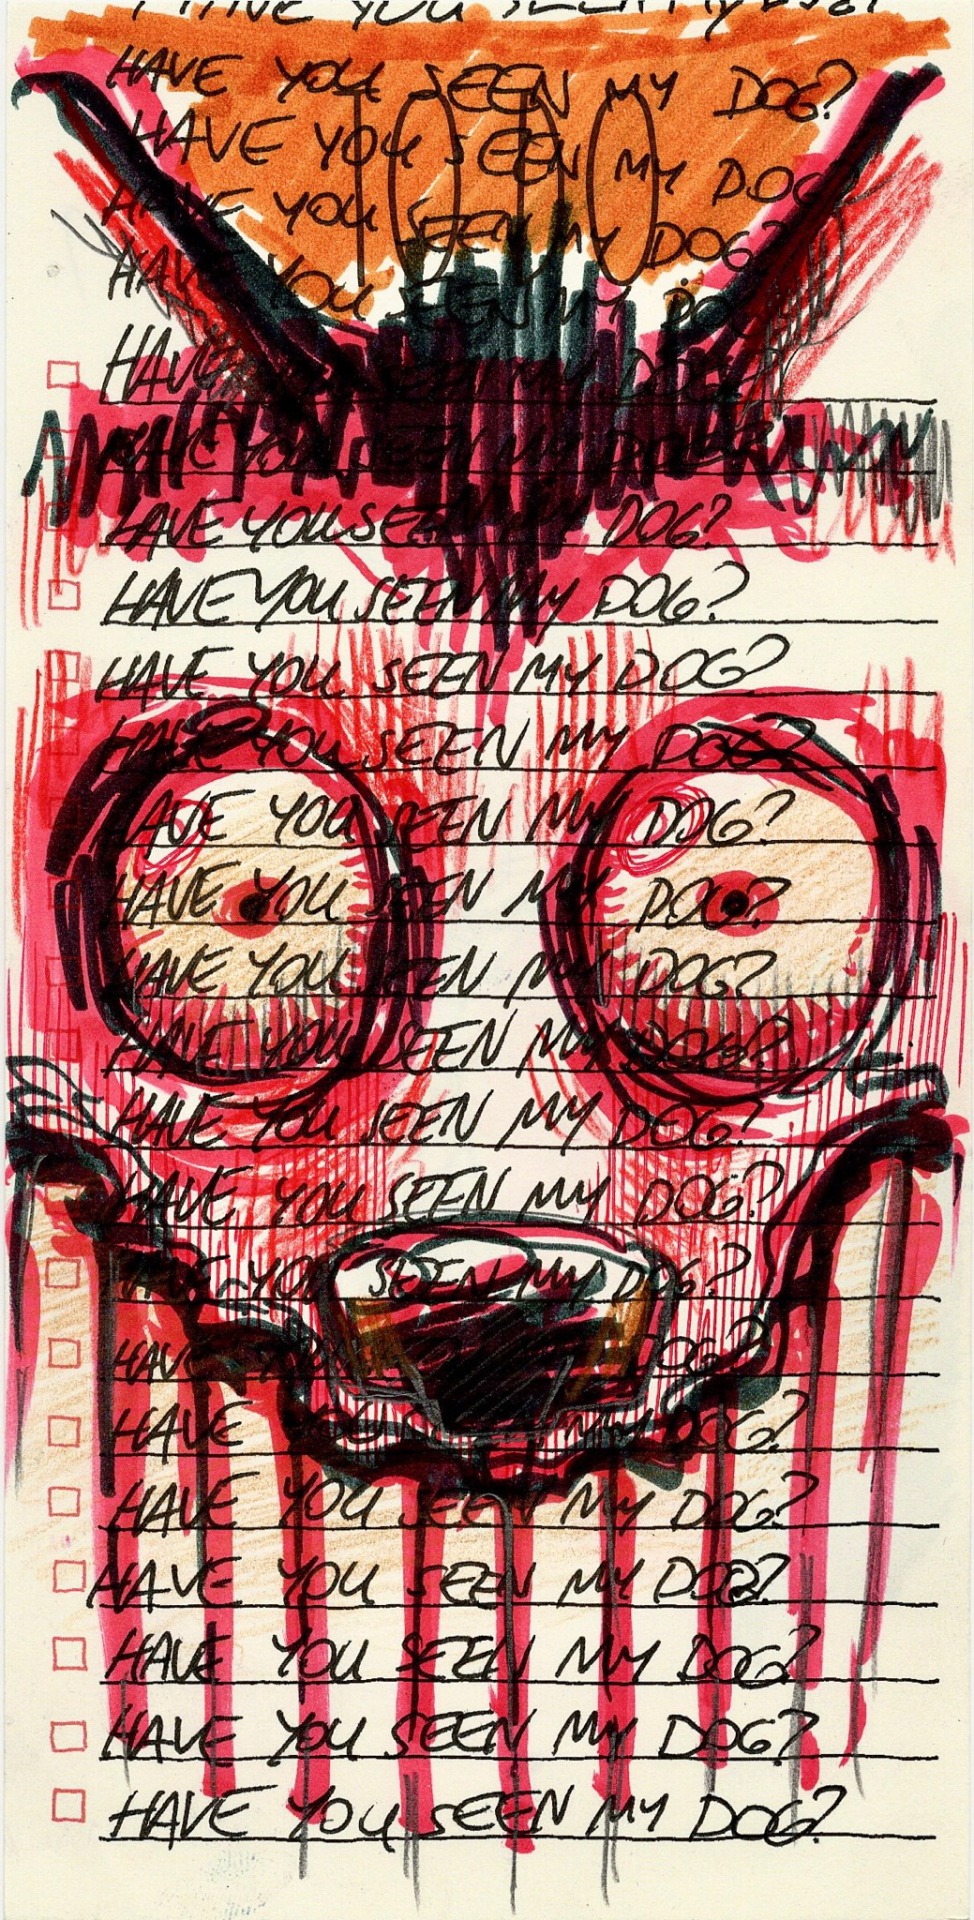 HAVE YOU SEEN MY DOG?
HAVE YOU SEEN MY DOG?
1010
HAVE YOU SEEN MY DOG?
HAVE YOU SEEN MY DOG?
HAVE YOU SEEN MY DOG?
HAVE SEEN MY DOG?
HAVE YOU SEEN MY DOG?
HAVE YOU SEEN MY DOG?
HAVE YOU SEEN MY DOG?
HAVE YOU SEEN MY DOG?
HAVE YOU SEEN MY DOG?
HAVE YOU SEEN MY DOG?
HAVE YOU SEEN MY DOG?
HAVE YOU SEEN MY DOG?
HAVE YOU SEEN MY DOG?
HAVE YOU SEEN MY DOG?
HAVE YOU SEEN MY DOG?
HAVE YOU SEEN MY DOG?
HAVE DOG?
HAVE YOU MY DOG?
HAVE YOU SEEN MY DOG?
HAVE YOU SEEN MY DOG?
HAVE YOU SEEN MY DOG?
HAVE YOU SEEN MY DOG?
HAVE YOU SEEN MY DOG?